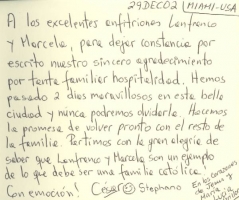 29DEC02 (MIAMI-USA
A los excelentes anfitriones Lanfranco
y Marcela, para dejar constancia por
escrito nuestro sincero agradecimiento
por tanta familiar hospitalidad. Hemos
pasado 2 días maravillosos en esta bella
ciudad y nunca podremos olvidarla. Hacemos
la promesa de volver pronto con el resto de
la familia. Partimos con la gran alegría de
saber que Lanfranco y Marcela son un ejemplo
de lo que debe ser una familia católica.
Con emoción! César Stephano
En los corazones
de Jesús y
María